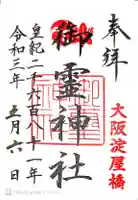 奉拝
大阪淀屋橋
御霊神社
皇紀二千六百八十一年
令和三年
五月六日